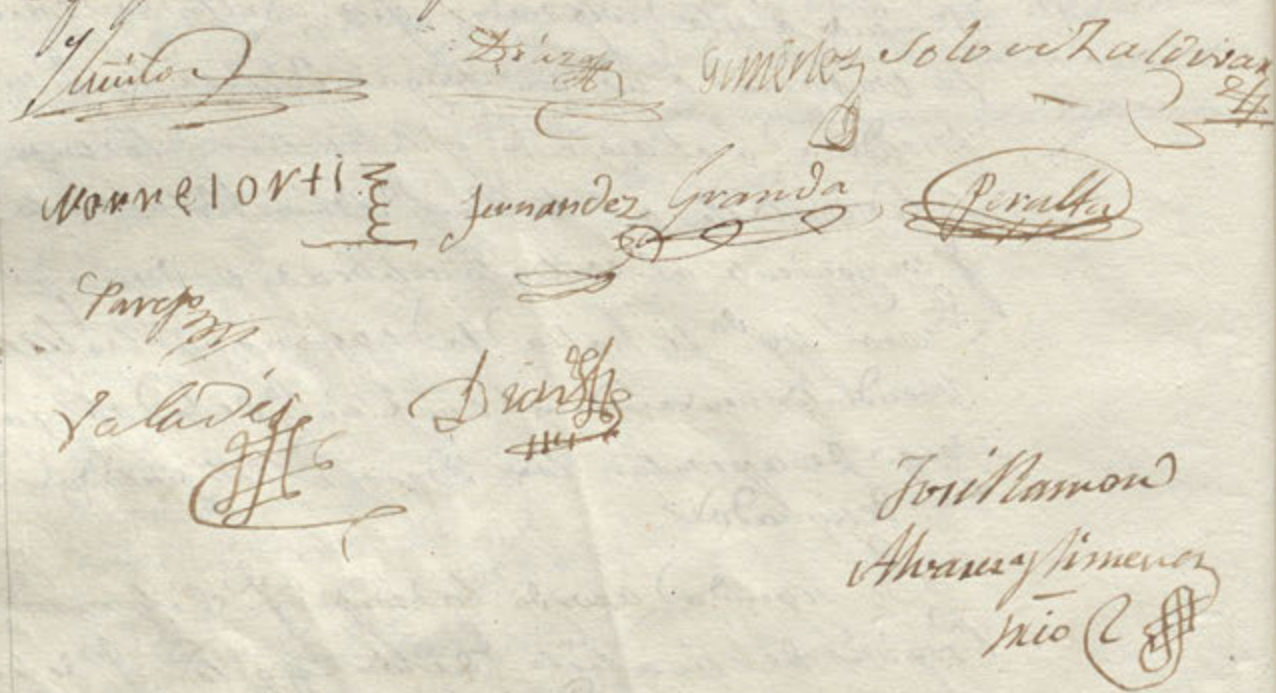 Diaz Gimenez Solo de Zaldivar
Morrelortiz Fernandez Granda Peralta
Parejo
Valadés Diaz
José Ramon
Alvarez y Jimenez
Srio